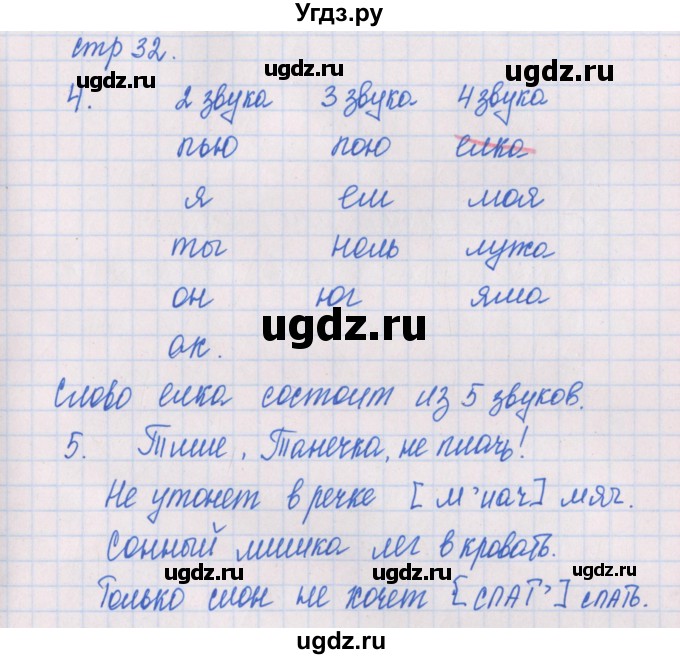 Угдз.ру
стр 32.
ugdz.ru ugdz.ru ugdz.ru
4. 2 звука 3 звука 4 звука
пью пою елка
я ем моя
ты ноль лужа
он юг яма
ugdz.ru
ок.
Слово елка состоит из 5 звуков.
5. Тише, Танечка, не плачь!
ugdz.ru ugdz.ru
Не утонет в речке [м'иач] мяч.
Сонный мишка лег в кровать.
ugdz.ru ugdz.ru ugdz.ru
Только слон не хочет [СПАТ'] спать.
ugdz.ru